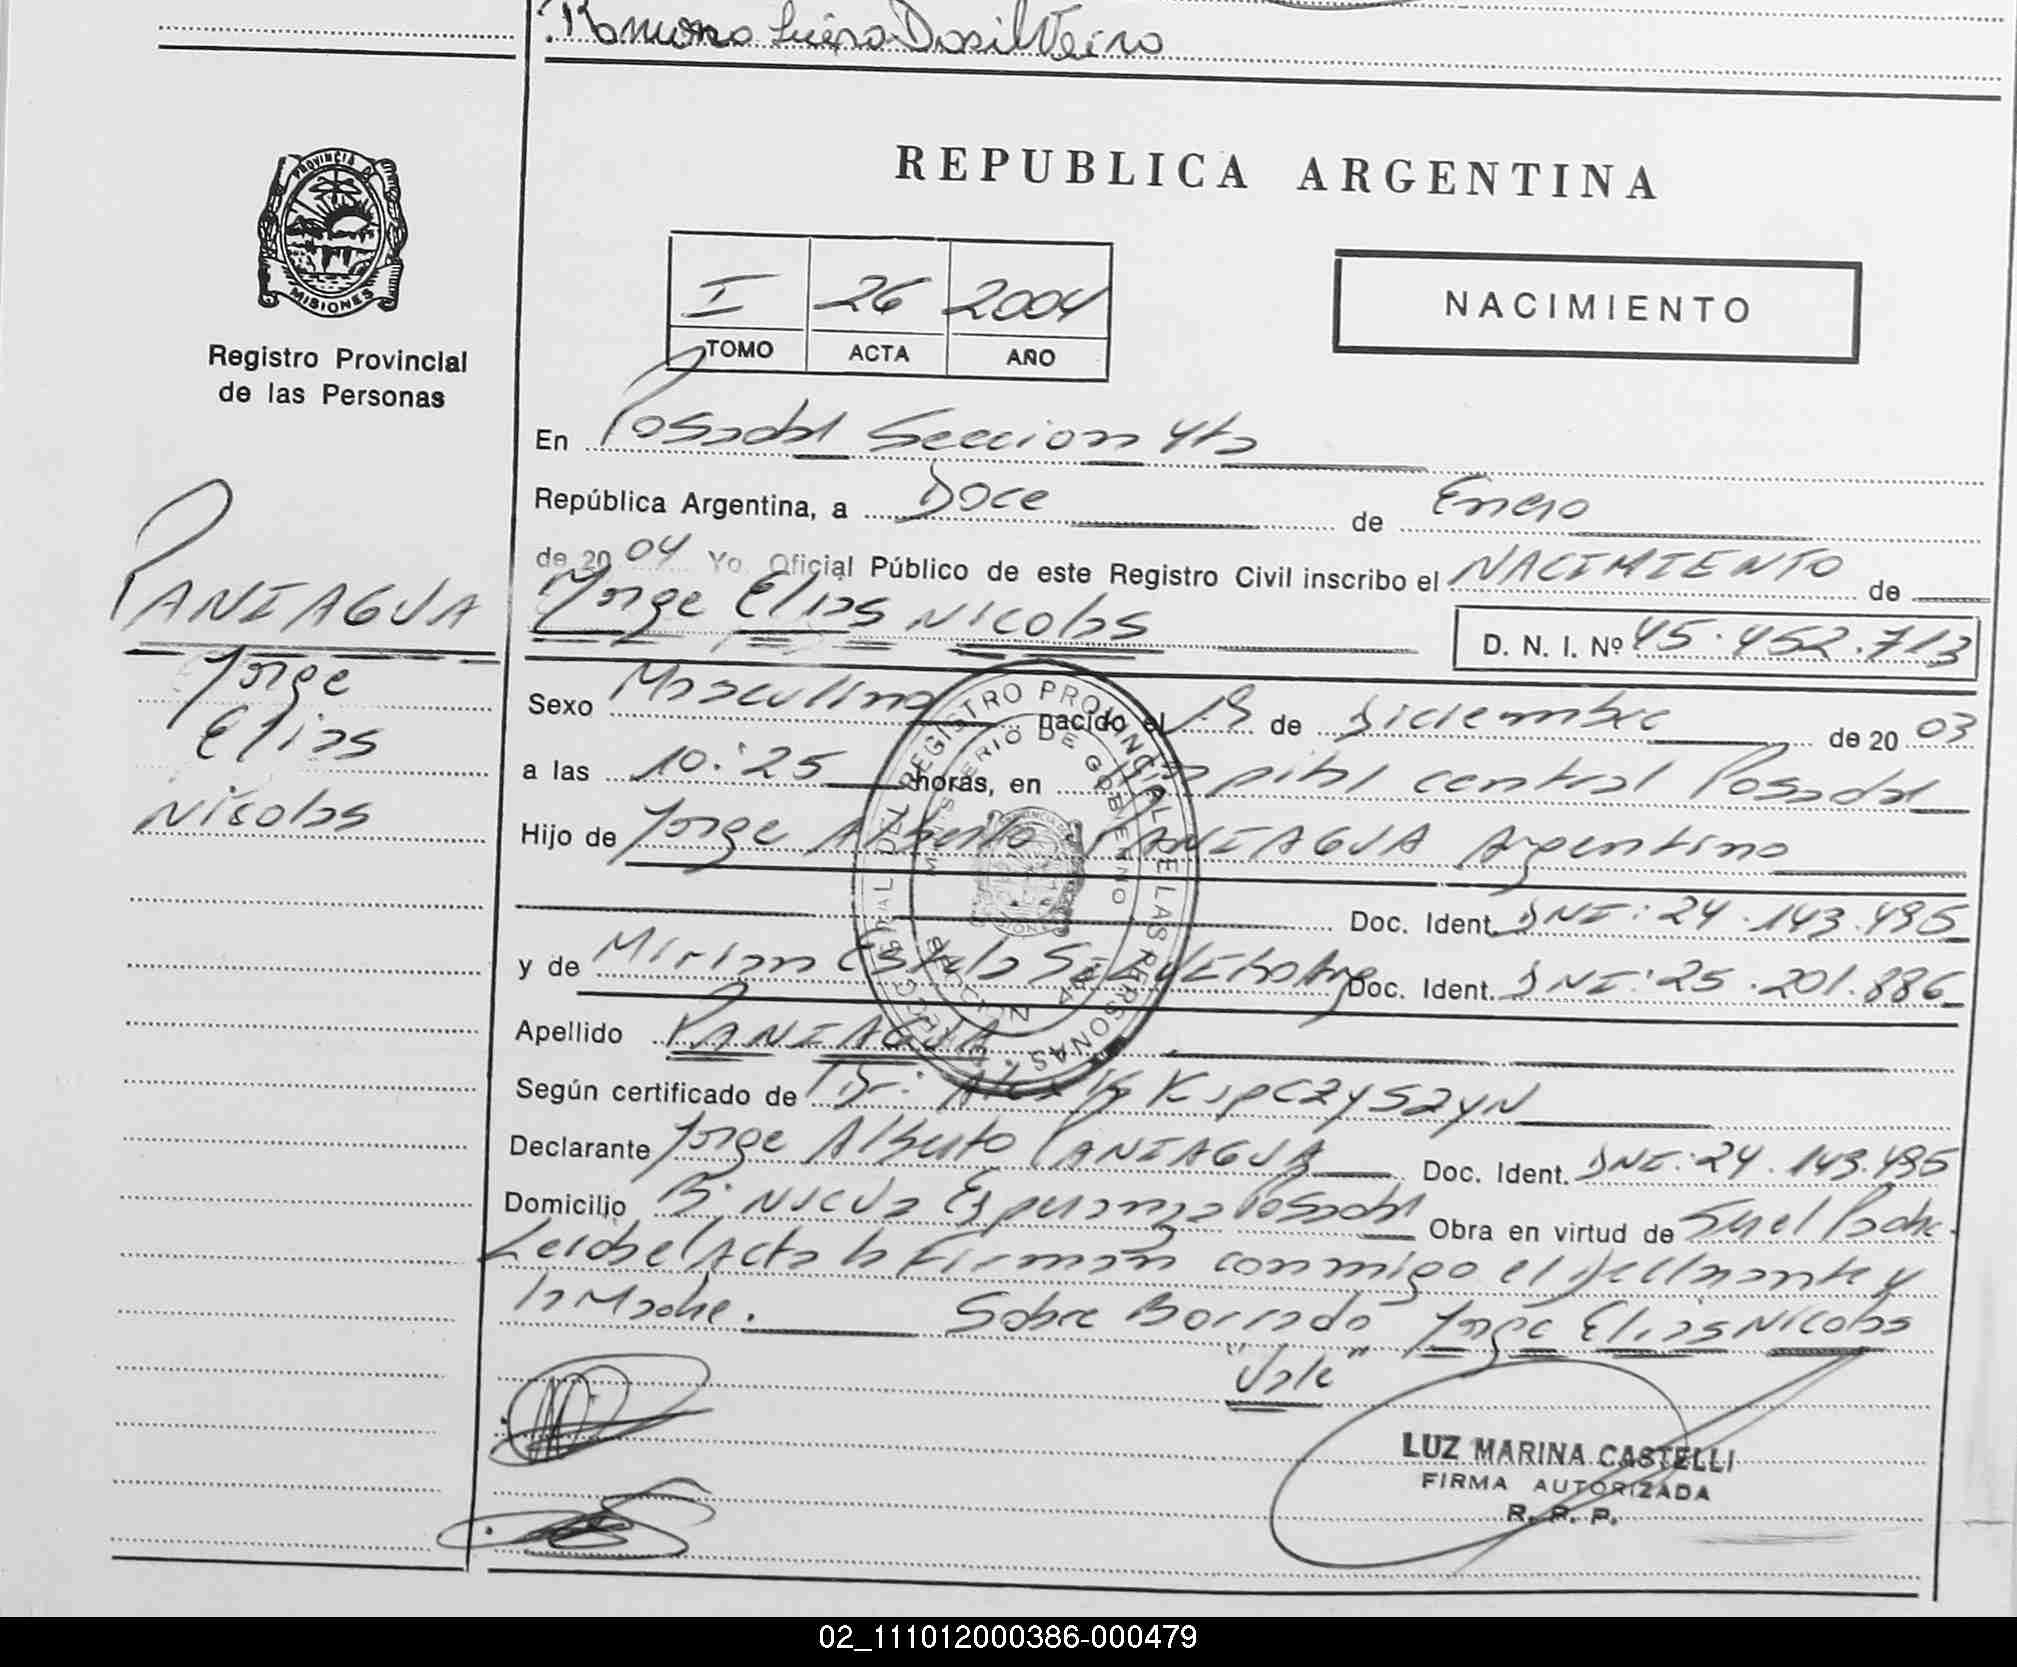 Ramona Luisa Dasilveira
PROVINCIA DE
MISIONES
Registro Provincial
de las Personas
REPUBLICA ARGENTINA
I 26 2004
TOMO ACTA AÑO
NACIMIENTO
En Posadas Seccion 4ta
República Argentina, a Doce de Enero
de 2004 Yo Oficial Público de este Registro Civil inscribo el NACIMIENTO de
Jorge Elias Nicolas
D. N. I. Nº 45.452.713
PANIAGUA
Jorge
Elias
Nicolas
Sexo Masculino nacido el 19 de Diciembre de 2003
a las 10:25 horas, en Hospital central Posadas
Hijo de Jorge Alberto PANIAGUA Argentino
Doc. Ident. DNI: 24.143.495
y de Mirian Estela Doc. Ident. DNI: 25.201.886
Apellido PANIAGUA
Según certificado de Dr: Alexis KupczySzyN
Declarante Jorge Alberto PANIAGUA Doc. Ident. DNI: 24.143.495
Domicilio B: Nueva Esperanza Posadas Obra en virtud de Ser el Padre.
Leida el Acta la Firman conmigo el declarante y
la Madre. Sobre Borrado Jorge Elias Nicolas
"Vale"
REGISTRO PROVINCIAL DE LAS PERSONAS
MINISTERIO DE GOBIERNO
LUZ MARINA CASTELLI
FIRMA AUTORIZADA
R. P. P.
02_111012000386-000479